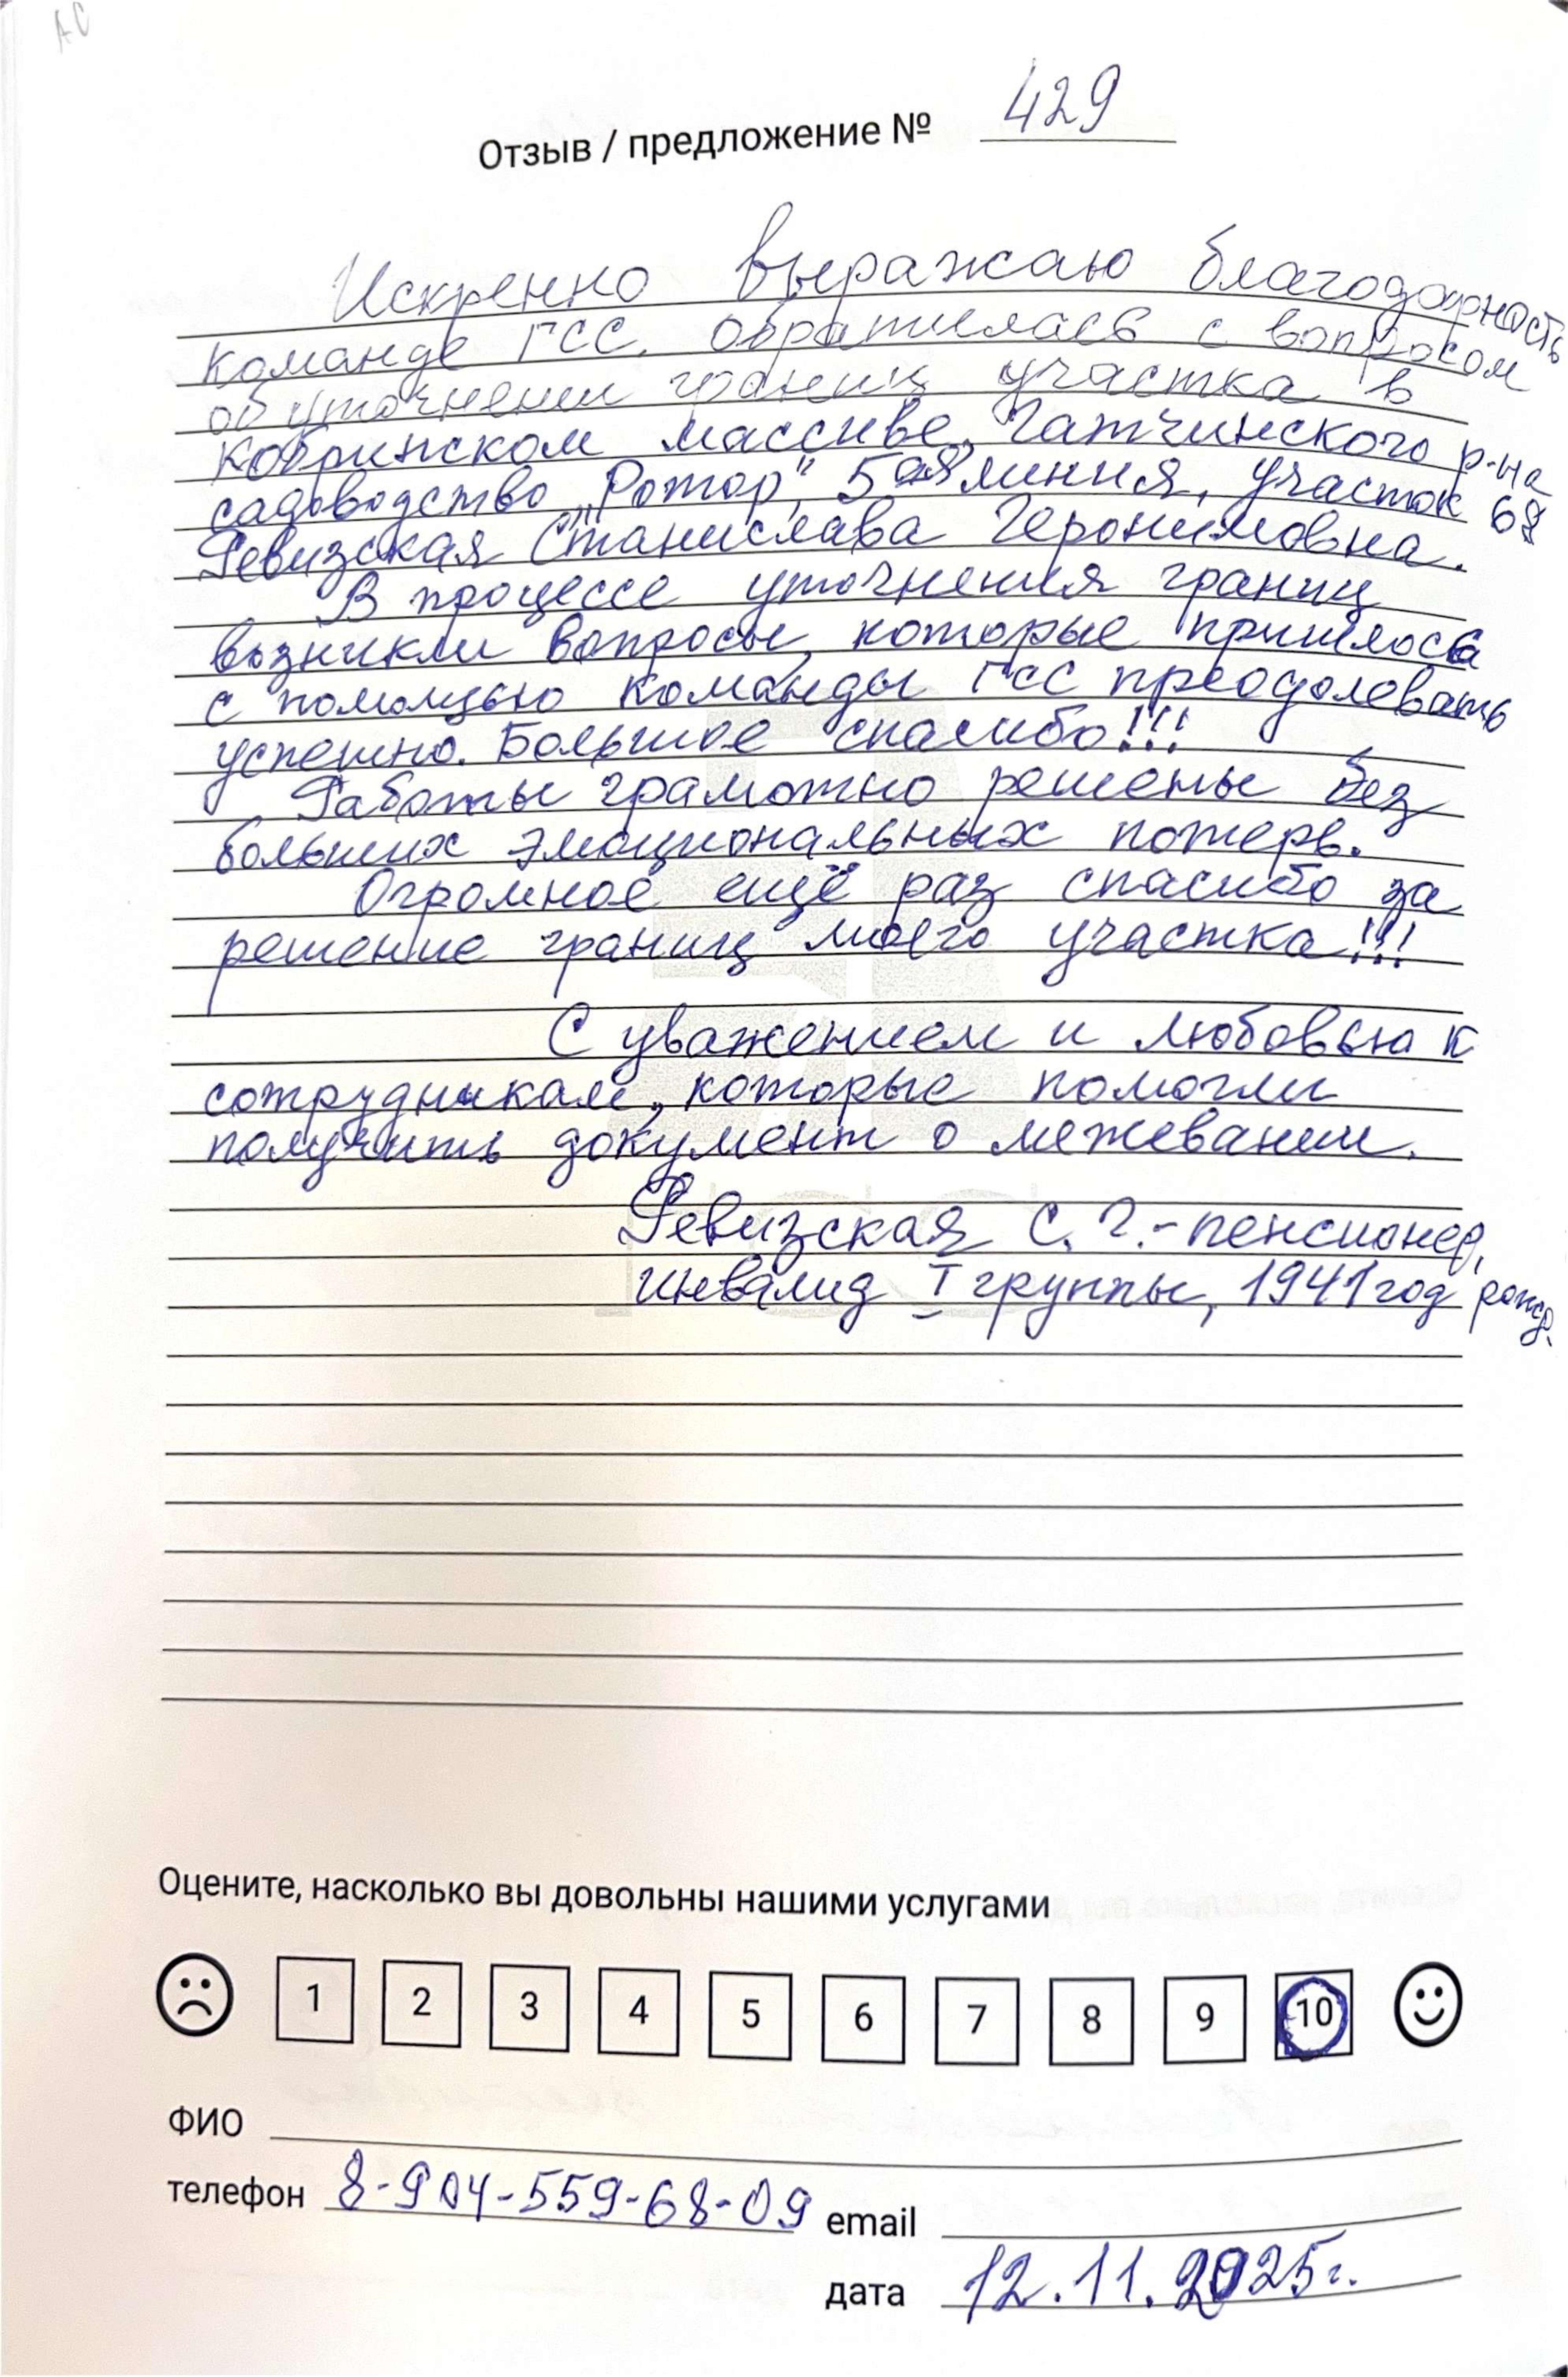 АС
Отзыв / предложение № 429
Искренно выражаю благодарность
команде ГСС. Обратилась с вопросом
об уточнении границ участка в
Кобринском массиве, Гатчинского р-на
садоводство „Ротор", 5ая линия, участок 68
Ревизская Станислава Геронимовна.
В процессе уточнения границ
возникли вопросы, которые пришлось
с помощью команды ГСС преодолевать
успешно. Большое спасибо!!!
Работы грамотно решены без
больших эмоциональных потерь.
Огромное ещё раз спасибо за
решение границ моего участка!!!
С уважением и любовью к
сотрудникам, которые помогли
получить документ о межевании.
Ревизская С. Г. - пенсионер,
инвалид I группы, 1941 год рожд.
Оцените, насколько вы довольны нашими услугами
1 2 3 4 5 6 7 8 9 10
ФИО
телефон 8-904-559-68-09 email
дата 12.11.2025г.